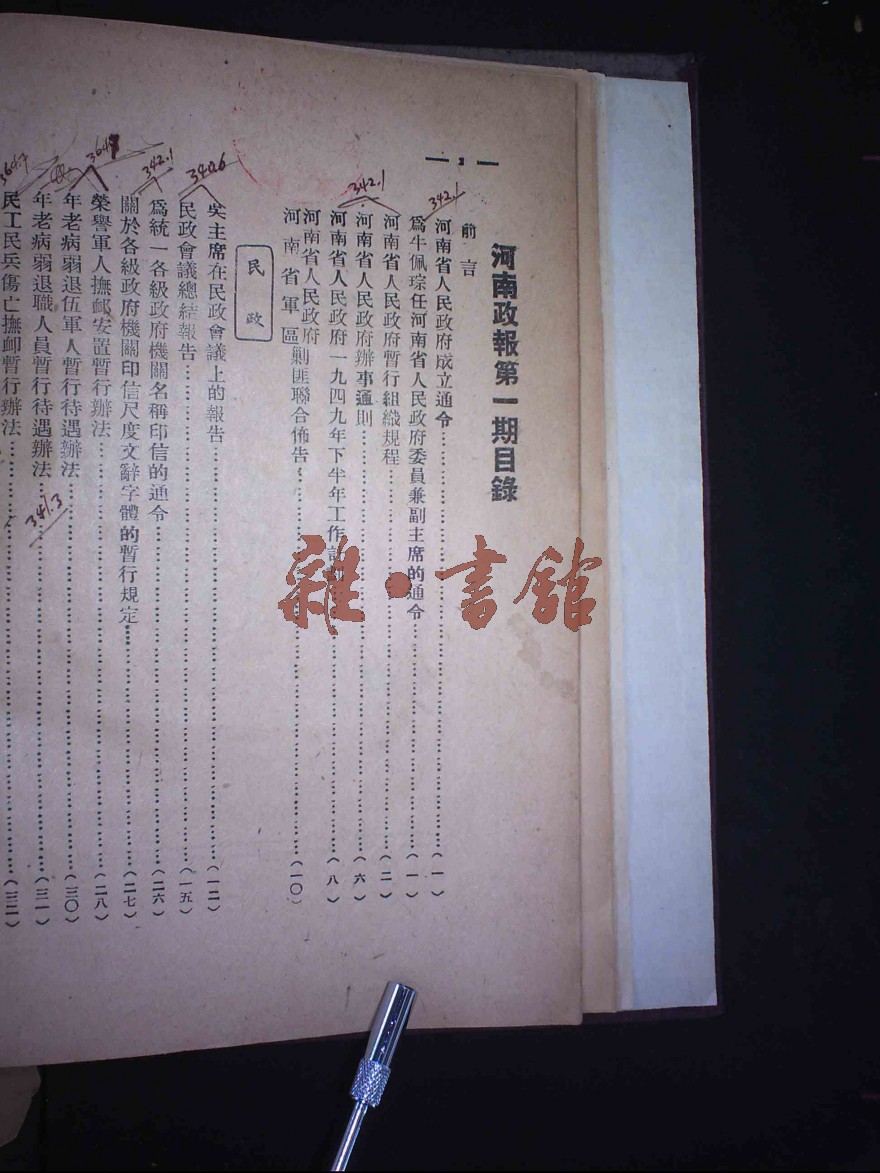 — 1 —
河南政報第一期目錄
前言
河南省人民政府成立通令……（一）
爲牛佩琮任河南省人民政府委員兼副主席的通令……（一）
河南省人民政府暫行組織規程……（二）
河南省人民政府辦事通則……（六）
河南省人民政府一九四九年下半年工作計劃……（八）
河南省人民政府
河南省軍區剿匪聯合佈告……（一〇）
民政
吳主席在民政會議上的報告……（一二）
民政會議總結報告……（一五）
爲統一各級政府機關名稱印信的通令……（二六）
關於各級政府機關印信尺度文辭字體的暫行規定……（二七）
榮譽軍人撫卹安置暫行辦法……（二八）
年老病弱退伍軍人暫行待遇辦法……（三〇）
年老病弱退職人員暫行待遇辦法……（三一）
民工民兵傷亡撫卹暫行辦法……（三二）
342.1
342.1
340.6
342.1
364.7
341.3
雜·書館